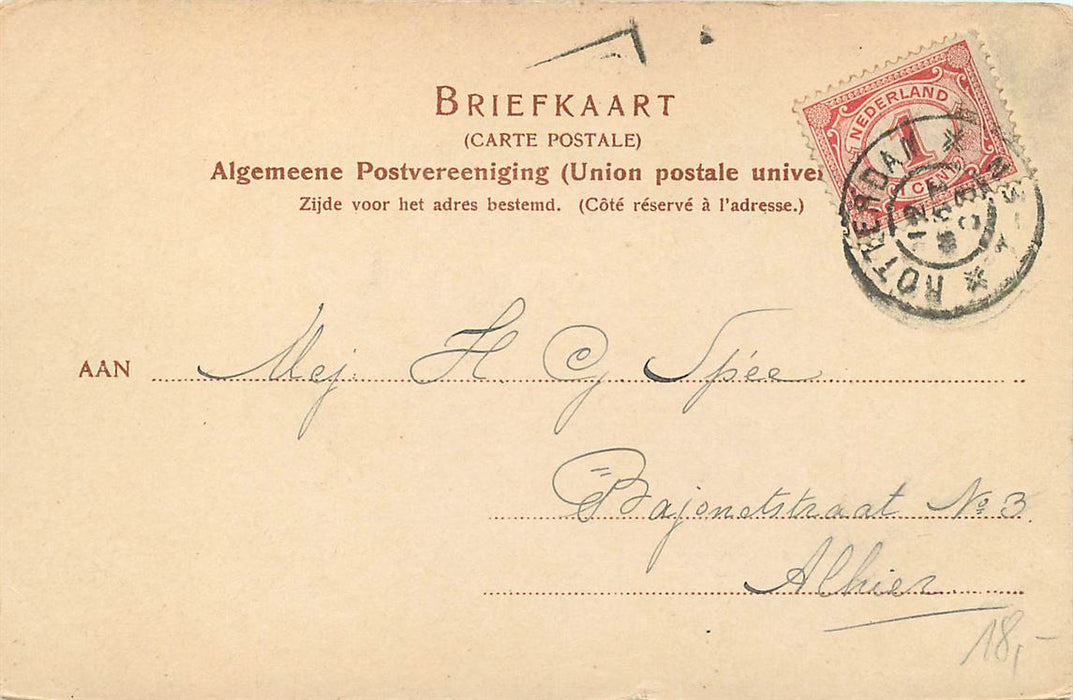 BRIEFKAART
(CARTE POSTALE)
Algemeene Postvereeniging (Union postale univer
Zijde voor het adres bestemd. (Côté réservé à l'adresse.)
NEDERLAND
1
1 CENT
ROTTERDAM
AAN Mej. H. G. Spée
Bajonetstraat No 3
Alhier
18,-